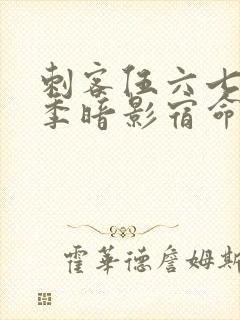 刺客伍六七
季暗影宿命
霍华德詹姆斯